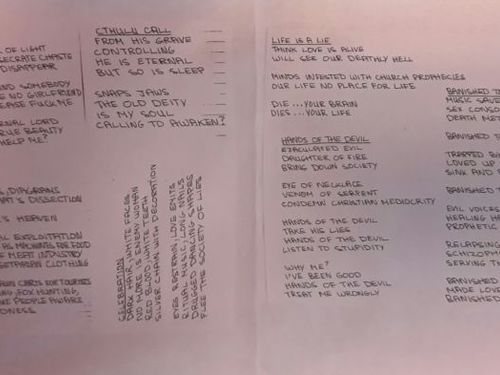 OF LIGHT
SECRATE CHASTE
DISAPPEAR
SOMEBODY
NO GIRLFRIEND
EASE FUCK ME
LORD
BEAUTY
HELP ME?
DIAGRAMS
DISSECTION
HEAVEN
EXPLOITATION
AS MACHINES FOR FOOD
MEAT INDUSTRY
CLOTHING
FOR TOURISTS
FOX HUNTING,
PEOPLE AWARE
CTHULU CALL
FROM HIS GRAVE
CONTROLLING
HE IS ETERNAL
BUT SO IS SLEEP
SNAPS JAWS
THE OLD DEITY
IS MY SOUL
CALLING TO AWAKEN?
CELEBRATION
DARK HAIR, WHITE FACES
NO MORALS ENEMY WOMAN
RED BLOOD, WHITE TEETH
SILVER CHAIN WITH DECORATION
EYES RESTRAIN, LOVE EMITS
RITUAL MUSIC, LONG NAILS
DRUGGED DANCING SHAPES
FLEE THE SOCIETY OF LIES
LIFE IS A LIE
THINK LOVE IS ALIVE
WILL SEE OUR DEATHLY HELL
MINDS INFESTED WITH CHURCH PROPHECIES
OUR LIFE NO PLACE FOR LIFE
DIE...YOUR BRAIN
DIES...YOUR LIFE
HANDS OF THE DEVIL
EJACULATED EVIL
DAUGHTER OF FIRE
BRING DOWN SOCIETY
EYE OF NECKLACE
VENOM OF SERPENT
CONDEMN CHRISTIAN MEDIOCRITY
HANDS OF THE DEVIL
TAKE HIS LIES
HANDS OF THE DEVIL
LISTEN TO STUPIDITY
WHY ME?
I'VE BEEN GOOD
HANDS OF THE DEVIL
TREAT ME WRONGLY
BANISHED
MUSIC
SEX
DEATH
BANISHED
TRAPPED
LOVED UP
SINK AND
BANISHED
EVIL VOICES
HEALING
PROPHETIC
RELAPSING
SERVING
BANISHED
MADE LOVE
BANISHED